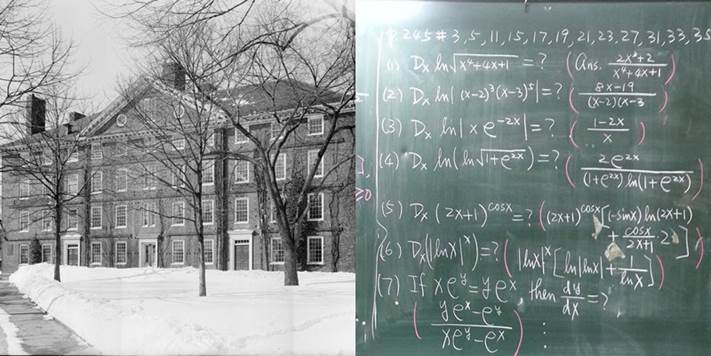 p. 245 # 3, 5, 11, 15, 17, 19, 21, 23, 27, 31, 33, 35
(1) Dx ln√(x⁴+4x+1) = ? (Ans. (2x³+2)/(x⁴+4x+1))
(2) Dx ln|(x-2)³(x-3)⁵| = ? ((8x-19)/((x-2)(x-3))
(3) Dx ln|xe^(-2x)| = ? ((1-2x)/x)
(4) Dx ln(ln√(1+e^(2x))) = ? (2e^(2x)/((1+e^(2x)) ln(1+e^(2x))))
(5) Dx (2x+1)^(cosx) = ? ((2x+1)^(cosx)[(-sinx) ln(2x+1)
+ cosx/(2x+1) · 2])
(6) Dx(|lnx|^x) = ? (|lnx|^x [ln|lnx| + 1/lnx])
(7) If xe^y = ye^x, then dy/dx = ?
((ye^x - e^y)/(xe^y - e^x))